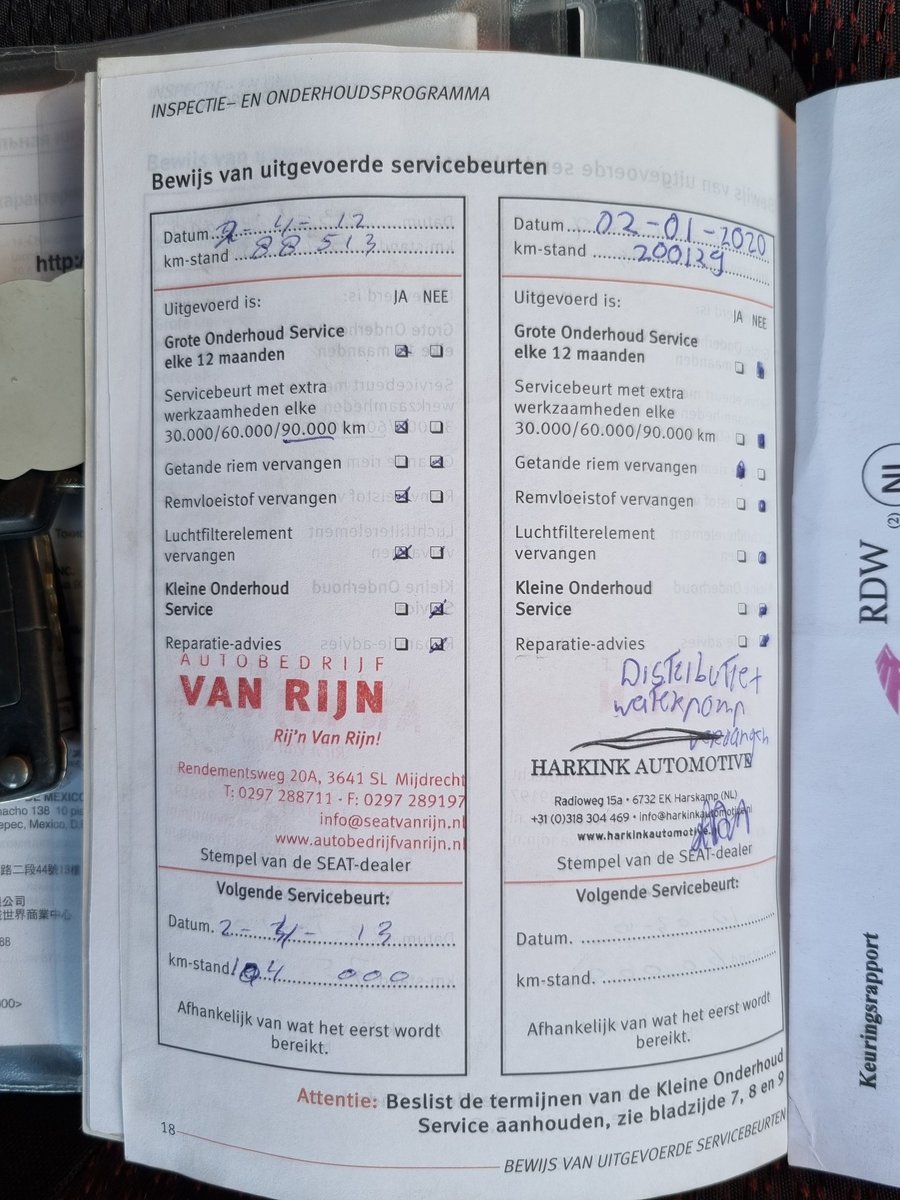 INSPECTIE– EN ONDERHOUDSPROGRAMMA
Bewijs van uitgevoerde servicebeurten
Datum 2 - 4 - 12
km-stand 88 513
Uitgevoerd is: JA NEE
Grote Onderhoud Service
elke 12 maanden
Servicebeurt met extra
werkzaamheden elke
30.000/60.000/90.000 km
Getande riem vervangen
Remvloeistof vervangen
Luchtfilterelement
vervangen
Kleine Onderhoud
Service
Reparatie-advies
AUTOBEDRIJF
VAN RIJN
Rij'n Van Rijn!
Rendementsweg 20A, 3641 SL Mijdrecht
T: 0297 288711 · F: 0297 289197
info@seatvanrijn.nl
www.autobedrijfvanrijn.nl
Stempel van de SEAT-dealer
Volgende Servicebeurt:
Datum. 2 - 3/ - 13
km-stand 104 000
Afhankelijk van wat het eerst wordt
bereikt.
Datum 02-01-2020
km-stand 200129
Uitgevoerd is: JA NEE
Grote Onderhoud Service
elke 12 maanden
Servicebeurt met extra
werkzaamheden elke
30.000/60.000/90.000 km
Getande riem vervangen
Remvloeistof vervangen
Luchtfilterelement
vervangen
Kleine Onderhoud
Service
Reparatie-advies
Distributie+
waterpomp
vervangen
HARKINK AUTOMOTIVE
Radioweg 15a • 6732 EK Harskamp (NL)
+31 (0)318 304 469 • info@harkinkautomotive.nl
www.harkinkautomotive.nl
Stempel van de SEAT-dealer
Volgende Servicebeurt:
Datum.
km-stand.
Afhankelijk van wat het eerst wordt
bereikt.
Attentie: Beslist de termijnen van de Kleine Onderhoud
Service aanhouden, zie bladzijde 7, 8 en 9
18
BEWIJS VAN UITGEVOERDE SERVICEBEURTEN
http:/
DE MEXICO
nacho 138 10 pis
tepec, Mexico, D.
路二段44號13樓
公司
世界商業中心
88
000>
(2) NL
RDW
Keuringsrapport